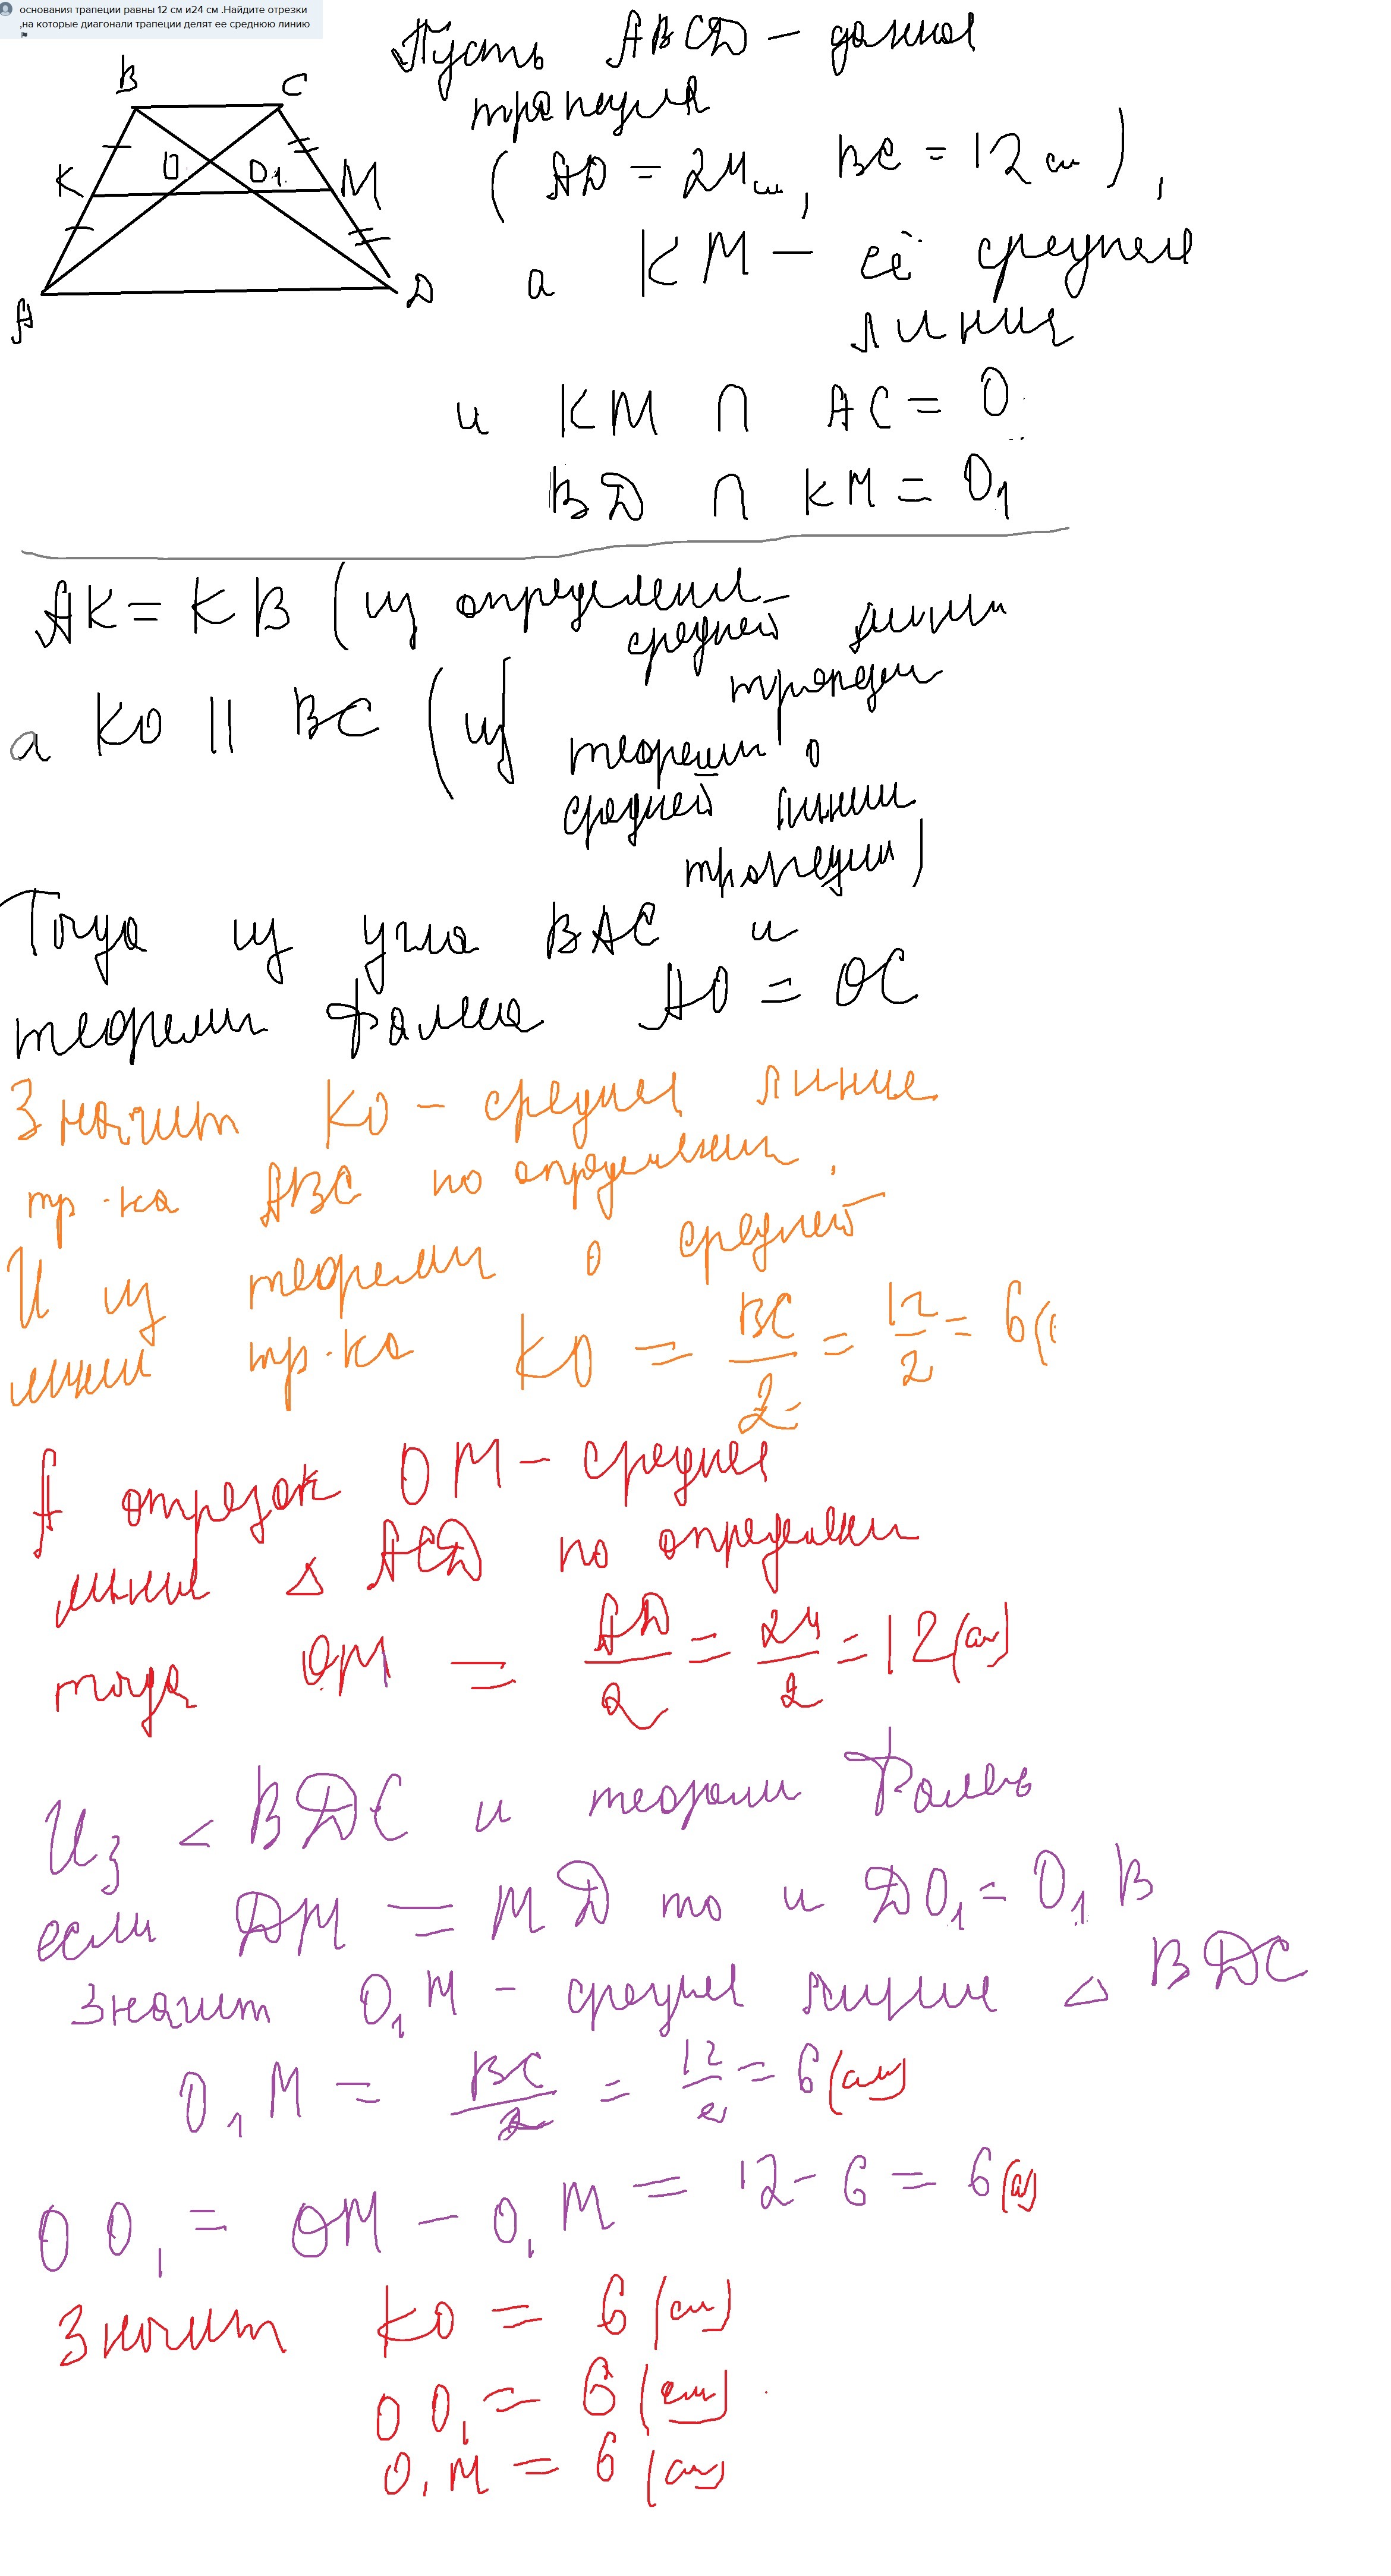 основания трапеции равны 12 см и24 см .Найдите отрезки
,на которые диагонали трапеции делят ее среднюю линию
B C
K O O₁ M
A D
Пусть ABCD – данная
трапеция
( AD = 24 см, BC = 12 см ) ,
а KM – её средняя
линия
и KM ∩ AC = O
BD ∩ KM = O₁
AK = KB ( из определения
средней линии
трапеции
а KO || BC ( из
теоремы о
средней линии
трапеции )
Тогда из угла BAC и
теоремы Фалеса AO = OC
Значит KO – средняя линия
тр-ка ABC по определению,
И из теоремы о средней
линии тр-ка KO = BC/2 = 12/2 = 6 (
А отрезок OM – средняя
линия △ ACD по определени
тогда OM = AD/2 = 24/2 = 12 (см)
Из < BDC и теоремы Фалеса
если DM = MD то и DO₁ = O₁B
значит O₁M – средняя линия △ BDC
O₁M = BC/2 = 12/2 = 6 (см)
OO₁ = OM – O₁M = 12 – 6 = 6 (см)
Значит KO = 6 (см)
OO₁ = 6 (см)
O₁M = 6 (см)